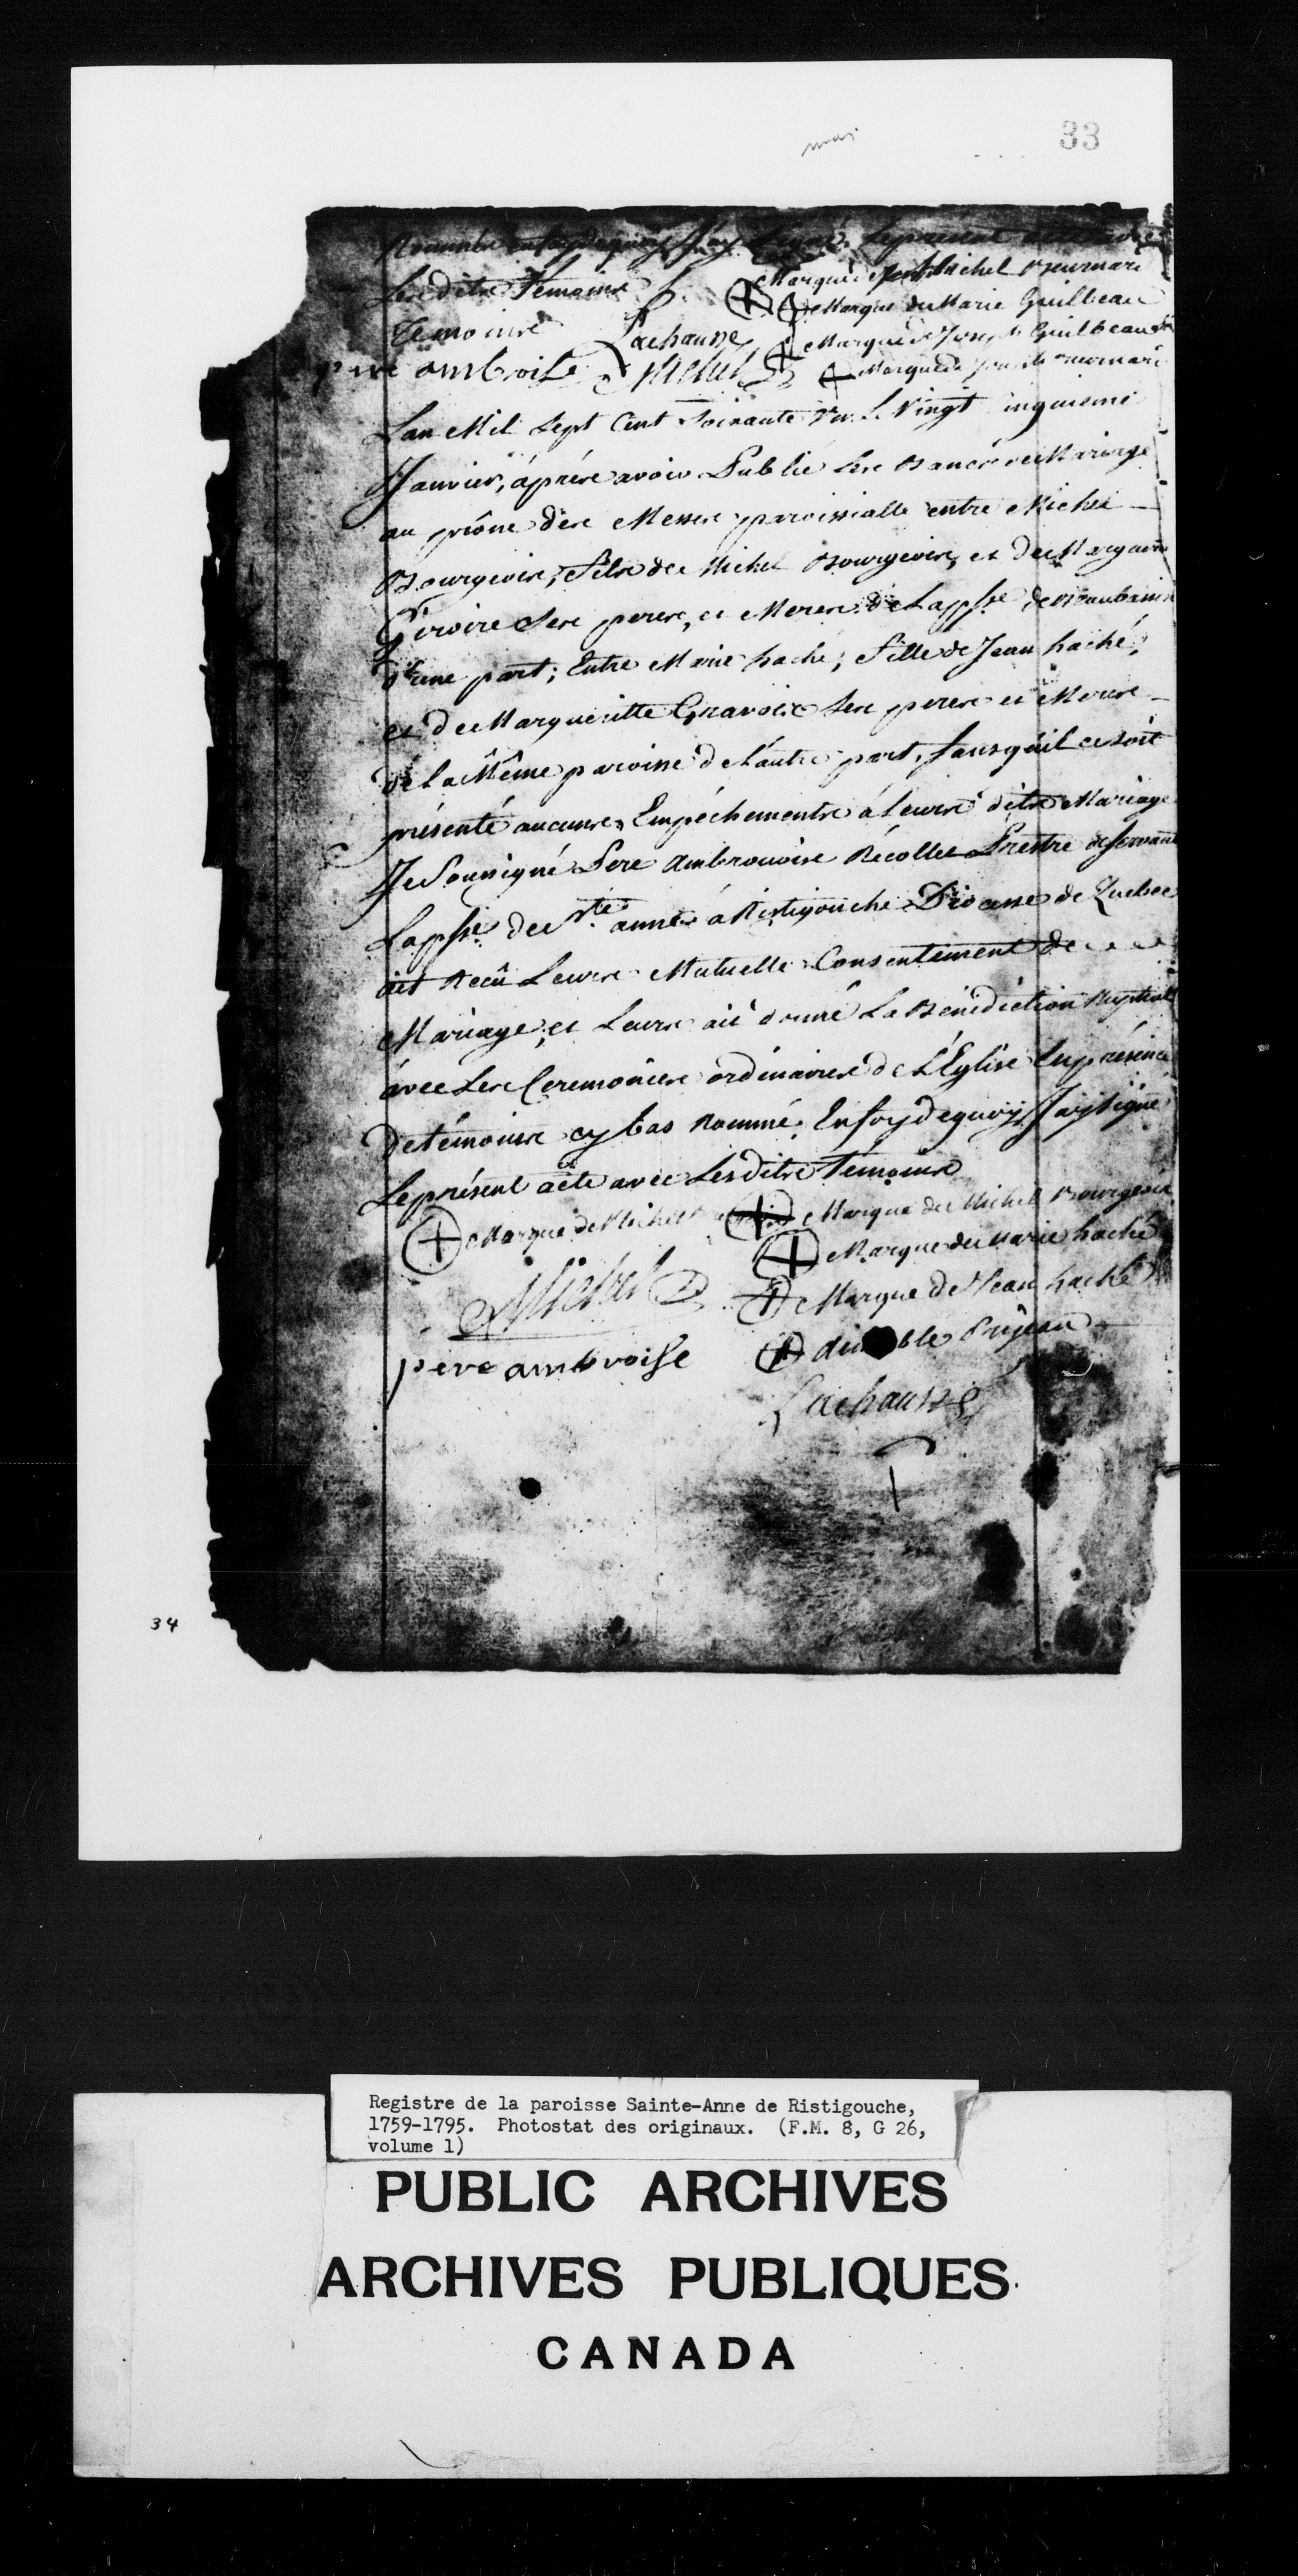 33
Nommés en foy de quoy J'ay signé Le présent
Lesdits Temoins Marque de Michel Bournari
Temoins Lachausse Marque de Marie Guilbeau
père ambroise Michel Marque de Joseph Guilbeau
Marque de Bournari
Lan Mil Sept Cent Soixante un Le Vingt inquieme
Janvier, áprés avoir Publié Les Bancs de Mariage
au prône des Messes paroissialle entre Michel
Bourgeois, fils de Michel Bourgeois, et de Margueri
Giroire Ses peres, et Meres de La psse de Beaubassin
d'une part; Entre Marie haché; fille de Jean haché,
et de Margueritte Gravois Ses peres et Meres
dé La Même paroisse de L'autre part, Sans qu'il ce soit
présenté aucuns Empéchements á Leurs dits Mariage
Je Sousigné Pere Ambrouoise Récollet Prestre desservant
La psse de Ste anne á Ristigouche Diocesse de Quebec
ait Recû Leurs Mutuelle Consentement de
Mariage, et Leurs ait donné La Bénédiction Nuptial
ávec Les Ceremonies ordinaires de L'Eglise En présence
de témoins cy bas Nommé; En foy de quoy J'ay Signé
Le présent acte avec Lesdits Témoins
Marque de Michel Marque de Michel Bourgeois
Marque de Marie haché
Michel Marque de Jean haché
père ambroise ble Prijean
Lachausse
34
Registre de la paroisse Sainte-Anne de Ristigouche,
1759-1795. Photostat des originaux. (F.M. 8, G 26,
volume 1)
PUBLIC ARCHIVES
ARCHIVES PUBLIQUES
CANADA